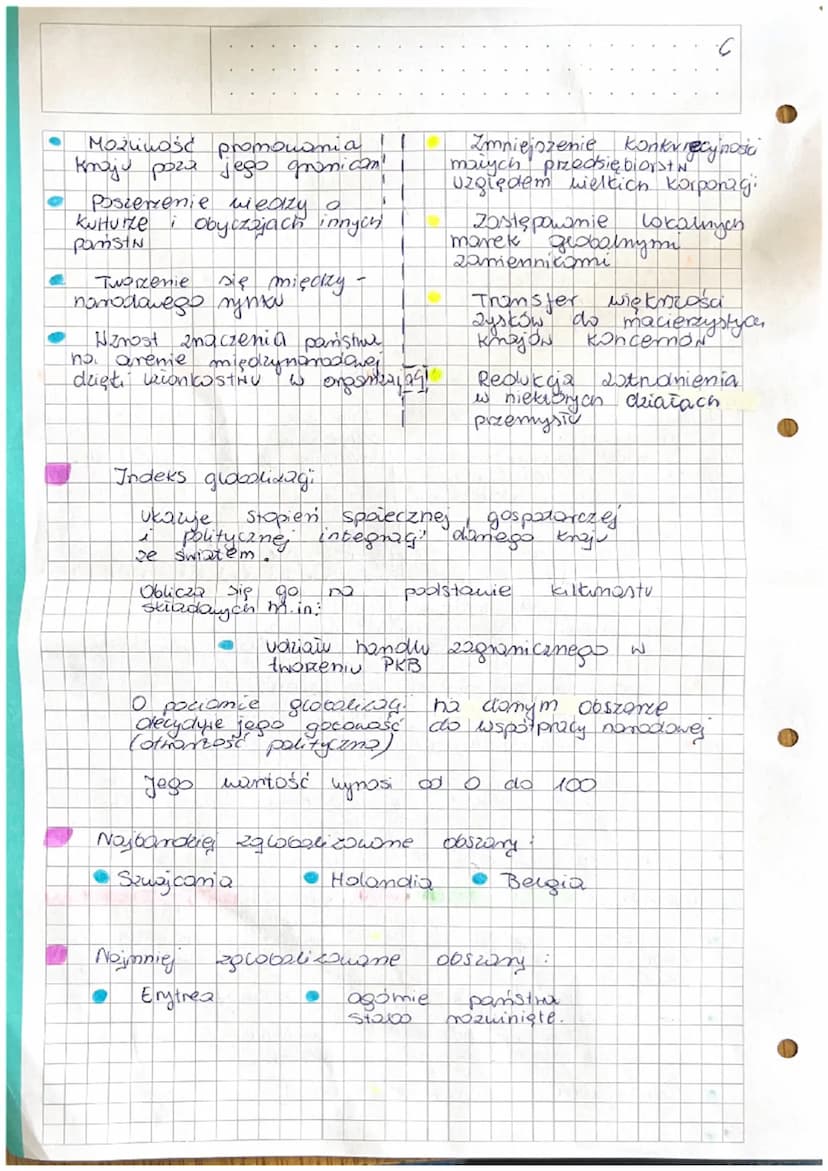 6
• Możliwość promowania
kraju poza jego granicami
• Poszerzenie wiedzy o
kulturze i obyczajach innych
państw
• Tworzenie się między -
narodowego rynku
• Wzrost znaczenia państwa
na arenie międzynarodowej
dzięki członkostwu w organizacjach
• Zmniejszenie konkurecyjności
małych przedsiębiorstw
względem wielkich korporacji
• Zastępowanie lokalnych
marek globalnymi
zamiennikami
• Transfer większości
zysków do macierzystych
krajów koncernów
• Redukcja zatrudnienia
w niektórych działach
przemysłu
Indeks globalizacji
Ukazuje stopień społecznej, gospodarczej
i politycznej integracji danego kraju
ze światem.
Oblicza się go na podstawie kilkunastu
składowych m.in:
• udziału handlu zagranicznego w
tworzeniu PKB
O poziomie globalizacji na danym obszarze
decyduje jego gotowość do współpracy narodowej
(otwartość polityczna)
Jego wartość wynosi od 0 do 100
Najbardziej zglobalizowane obszary:
• Szwajcaria • Holandia • Belgia
Najmniej zglobalizowane obszary:
• Erytrea • ogólnie państwa
słabo rozwinięte.